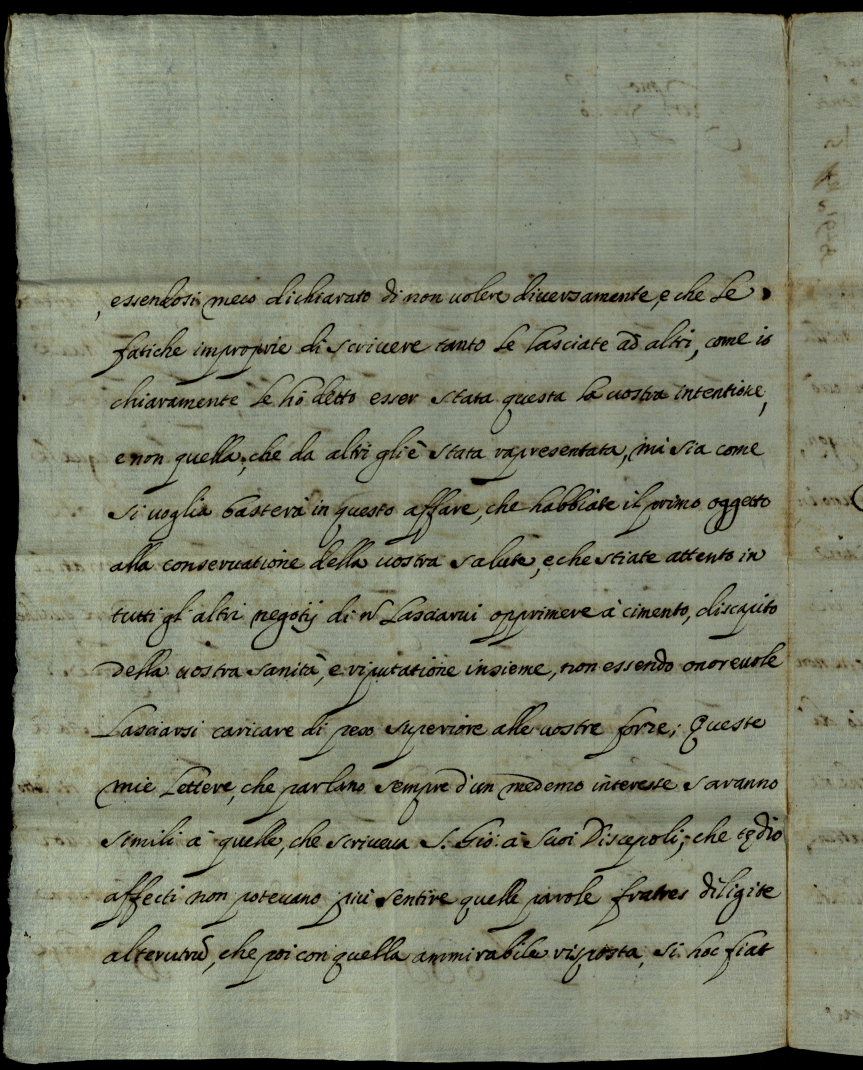 , essendosi meco dichiarato di non uolere diuersamente, e che Le
fatiche improprie di scriuere tanto Le Lasciate ad altri, come io
chiaramente Le hò detto esser stata questa la uostra intentione,
e non quella, che da altri gli è stata rapresentata, mà sia come
si uoglia basterà in questo affare, che habbiate il primo oggetto
alla conseruatione della uostra salute, e che stiate attento in
tutti gl' altri negotij di nō Lasciarui opprimere à cimento, discapito
della uostra sanità, e riputatione insieme, non essendo onoreuole
Lasciarsi caricare di peso superiore alle uostre forze; Queste
mie Lettere, che parlano sempre d'un medemo interesse saranno
simili à quelle, che scriueua S. Gio: à Suoi Discepoli; che tędio
affecti non poteuano più sentire quelle parole fratres diligite
alterutrū, che poi con quella ammirabile risposta, si hoc fiat